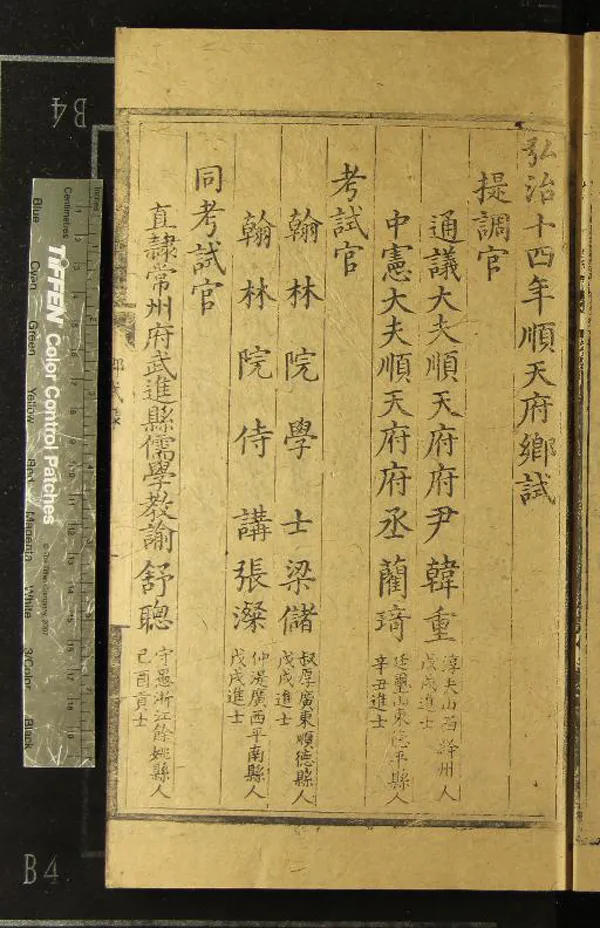 弘治十四年順天府鄉試
提調官
通議大夫順天府府尹韓重 淳夫山西絳州人
戊戌進士
中憲大夫順天府府丞藺琦 廷璽山東德平縣人
辛丑進士
考試官
翰林院學士梁儲 叔厚廣東順德縣人
戊戌進士
翰林院侍講張濴 仲湜廣西平南縣人
戊戌進士
同考試官
直隸常州府武進縣儒學教諭舒聰 守愚浙江餘姚縣人
己酉貢士
鄉試錄
B4
B4
Centimetres
TIFFEN Color Control Patches
© The Tiffen Company, 2007
Blue
Cyan
Green
Yellow
Red
Magenta
White
3/Color
Black